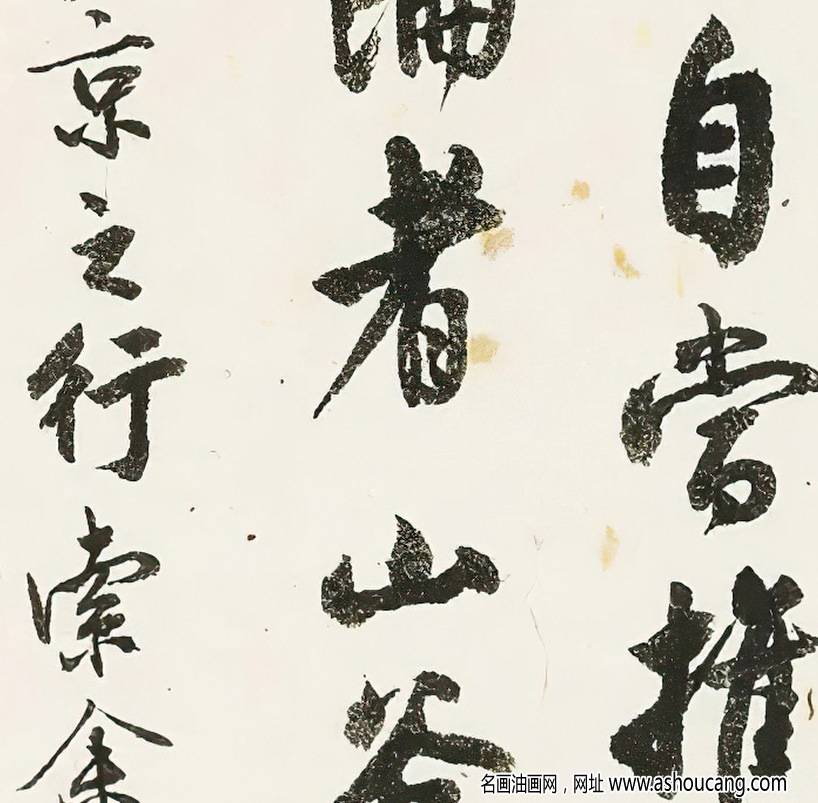 自尝推
者山谷
京之行索余
名画油画网，网址 www.ashoucang.com